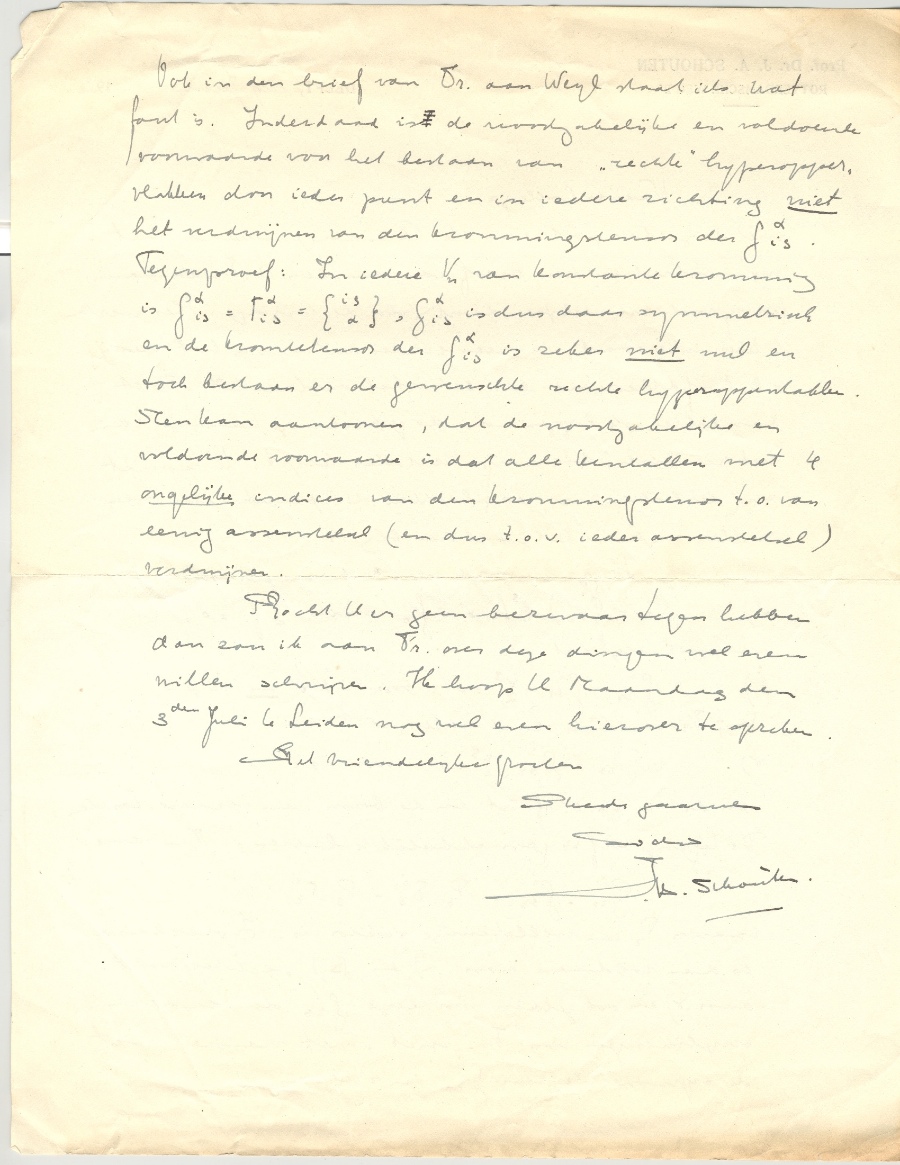 Ook in den brief van Dr. aan Weyl staat iets wat
fout is. Inderdaad is de noodzakelijke en voldoende
voorwaarde voor het bestaan van „rechte" hyperopper-
vlakken door ieder punt en in iedere richting niet
het verdwijnen van den krommingstensor der
Tegenproef: In iedere Vn van konstante kromming
is = Γ^α_is = {is α}, is dus daar symmetrisch
en de tensor der is zeker niet nul en
toch bestaan er de gewenschte rechte hyperoppervlakken.
Men kan aantoonen, dat de noodzakelijke en
voldoende voorwaarde is dat alle kentallen met 4
ongelijke indices van den krommingstensor t.o. van
eenig assenstelsel (en dus t.o.v. ieder assenstelsel)
verdwijnen.
Mocht U er geen bezwaar tegen hebben
dan zou ik aan Dr. over deze dingen wel even
willen schrijven. Ik hoop U Maandag den
3den Juli te Leiden nog wel even hierover te spreken.
Met vriendelijke groeten
Steeds gaarne
Schouten.
Prof. Dr. J. A. SCHOUTEN